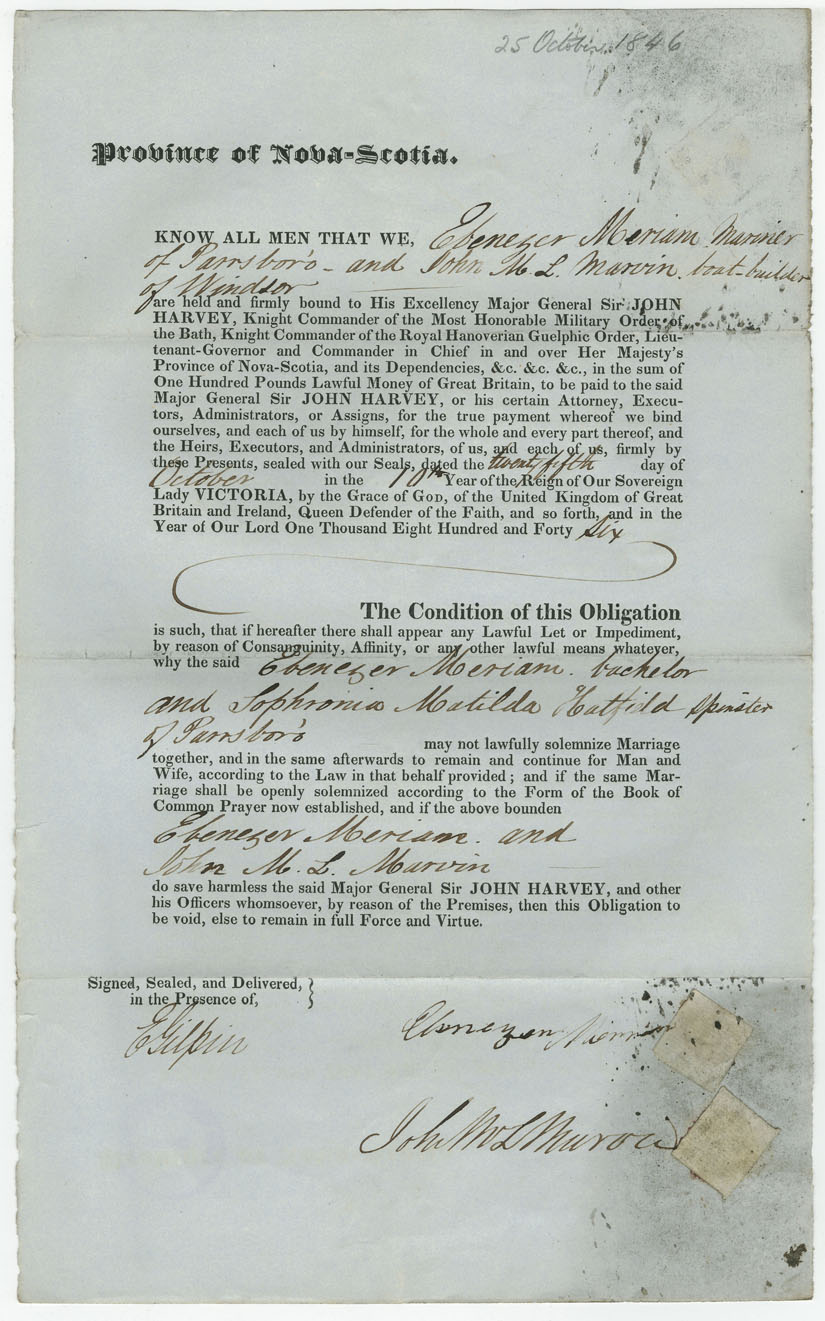 25 October 1846
Province of Nova-Scotia.
KNOW ALL MEN THAT WE, Ebenezer Meriam Mariner
of Parrsboro' - and John M. L. Marvin boat-builder
of Windsor
are held and firmly bound to His Excellency Major General Sir JOHN
HARVEY, Knight Commander of the Most Honorable Military Order of
the Bath, Knight Commander of the Royal Hanoverian Guelphic Order, Lieu-
tenant-Governor and Commander in Chief in and over Her Majesty's
Province of Nova-Scotia, and its Dependencies, &c. &c. &c., in the sum of
One Hundred Pounds Lawful Money of Great Britain, to be paid to the said
Major General Sir JOHN HARVEY, or his certain Attorney, Execu-
tors, Administrators, or Assigns, for the true payment whereof we bind
ourselves, and each of us by himself, for the whole and every part thereof, and
the Heirs, Executors, and Administrators, of us, and each of us, firmly by
these Presents, sealed with our Seals, dated the twenty fifth day of
October in the 10th Year of the Reign of Our Sovereign
Lady VICTORIA, by the Grace of GOD, of the United Kingdom of Great
Britain and Ireland, Queen Defender of the Faith, and so forth, and in the
Year of Our Lord One Thousand Eight Hundred and Forty Six
The Condition of this Obligation
is such, that if hereafter there shall appear any Lawful Let or Impediment,
by reason of Consanguinity, Affinity, or any other lawful means whatever,
why the said Ebenezer Meriam. bachelor
and Sophronia Matilda Hatfield Spinster
of Parrsboro'
may not lawfully solemnize Marriage
together, and in the same afterwards to remain and continue for Man and
Wife, according to the Law in that behalf provided; and if the same Mar-
riage shall be openly solemnized according to the Form of the Book of
Common Prayer now established, and if the above bounden
Ebenezer Meriam. and
John M. L. Marvin
do save harmless the said Major General Sir JOHN HARVEY, and other
his Officers whomsoever, by reason of the Premises, then this Obligation to
be void, else to remain in full Force and Virtue.
Signed, Sealed, and Delivered,
in the Presence of,
E Gilpin
Ebenezer
John M L Marvin